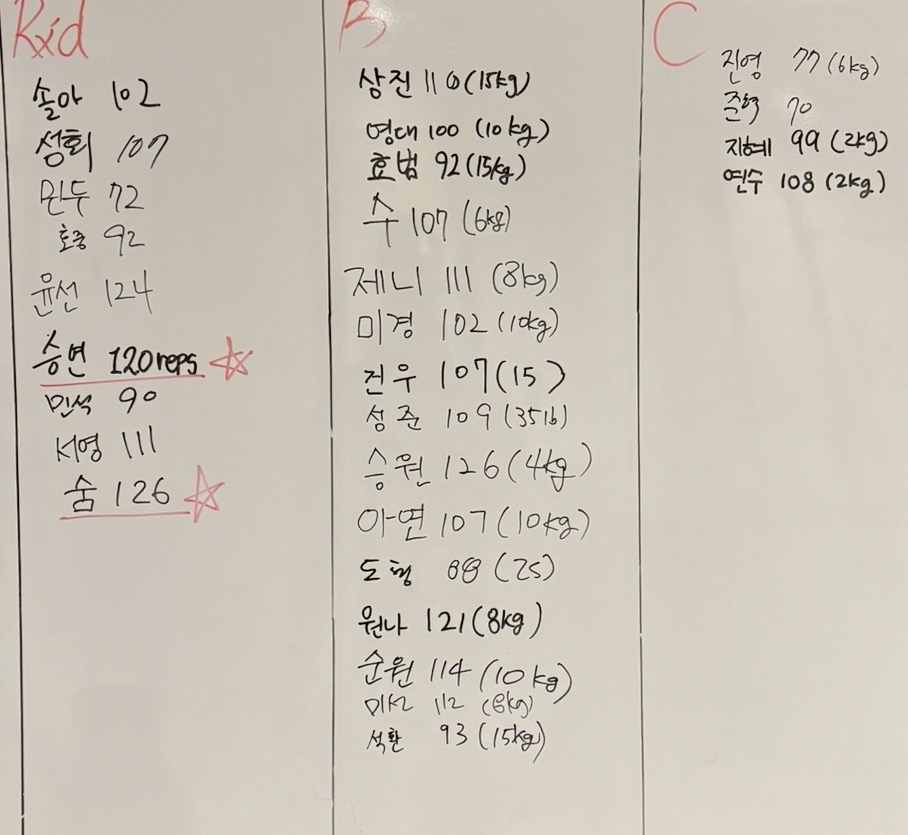 Rxd
솔아 102
성희 107
민두 72
호중 92
윤선 124
승연 120reps
민석 90
서영 111
숨 126
B
상진 110 (15kg)
영대 100 (10kg)
효범 92 (15kg)
수 107 (6kg)
제니 111 (8kg)
미경 102 (10kg)
건우 107 (15)
성준 109 (35lb)
승원 126 (4kg)
아연 107 (10kg)
도형 88 (25)
원나 121 (8kg)
순원 114 (10kg)
미선 112 (6kg)
석환 93 (15kg)
C
진영 77 (6kg)
준혁 70
지혜 99 (2kg)
연수 108 (2kg)